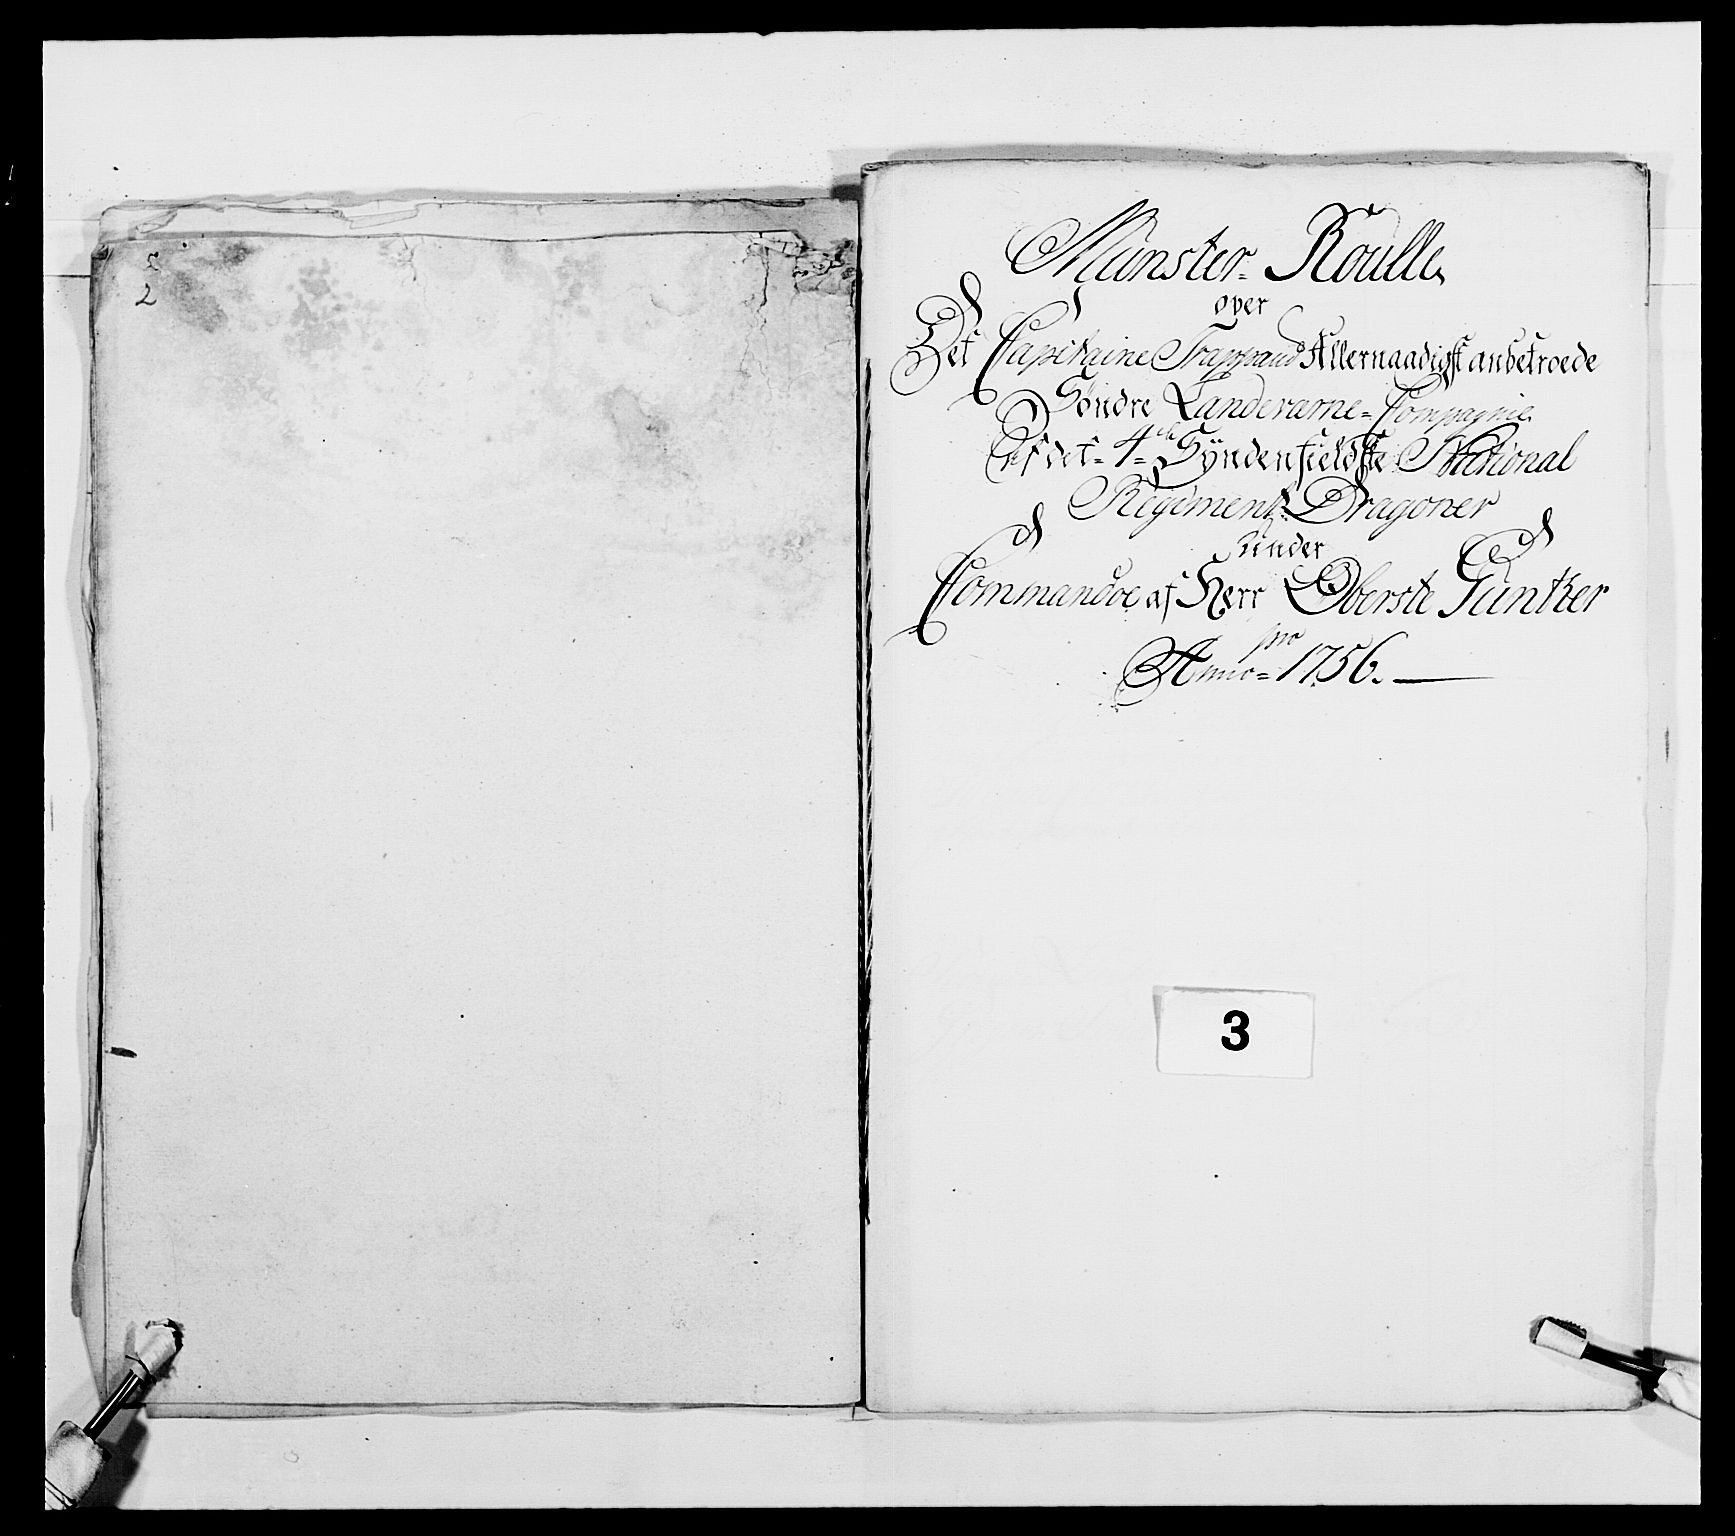 2
Mönster-Roulle
over
Det Capitaine Frappaud Allernaadigst anbetroede
Söndre Landerarne-Compagnie
Af det=4=de Syndenfieldske National
Regiment Dragoner
under
Commandoe af Herr Oberste Günther
pro
Anno=1756.
3